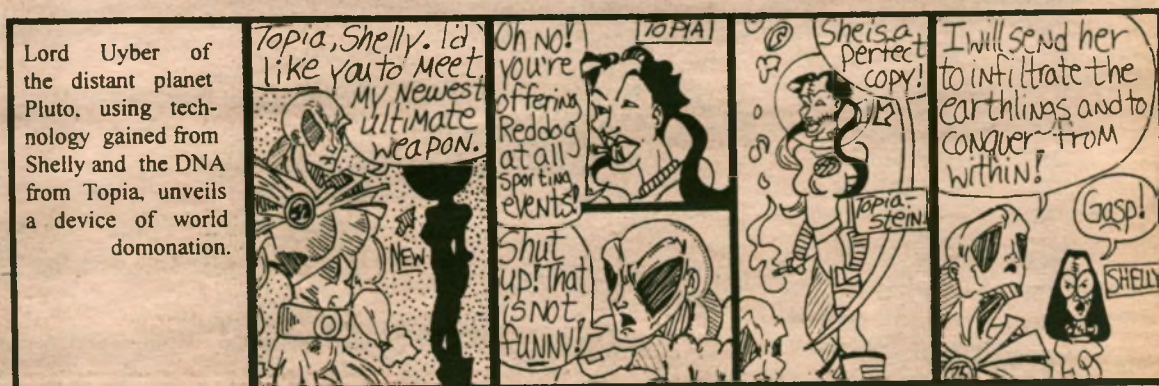 Lord Uyber of
the distant planet
Pluto, using tech-
nology gained from
Shelly and the DNA
from Topia, unveils
a device of world
domonation.
Topia, Shelly. I'd
like you to meet
my newest
ultimate
weapon.
NEW
Oh no!
you're
offering
Reddog
at all
sporting
events!
TOPIA!
Shut
up! That
is not
funny!
She is a
perfect
copy!
Topia-
stein!
I will send her
to infiltrate the
earthlings and to
conquer from
within!
Gasp!
SHELLY